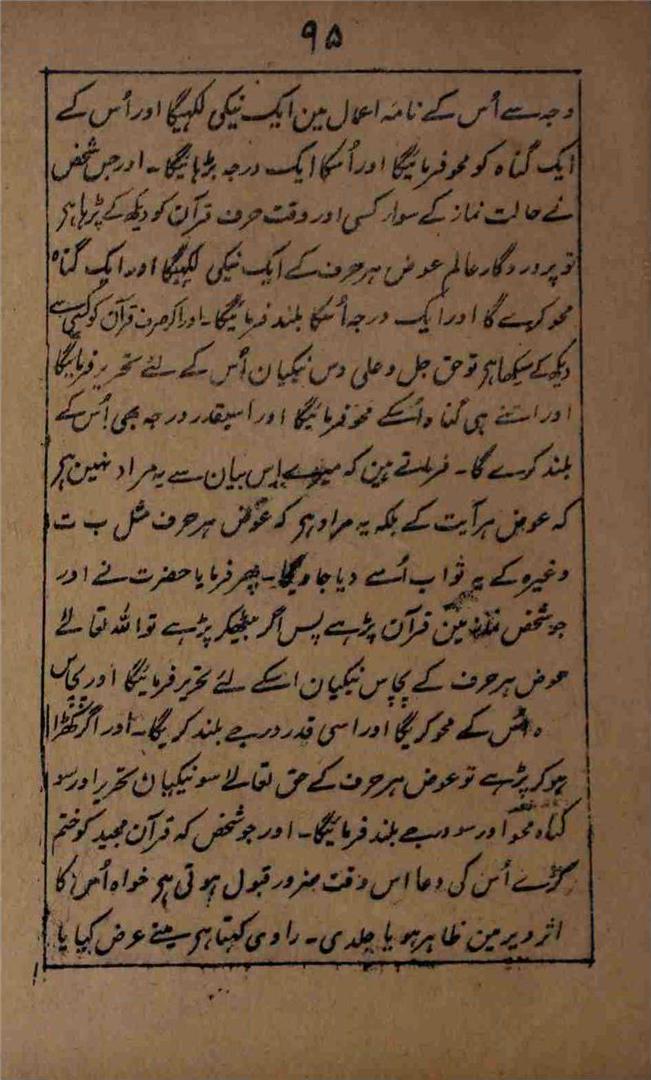 ۹۵
وجہ سے اُس کے نامہ اعمال مین ایک نیکی لکھیگا اور اُس کے
ایک گناہ کو محو فرمائیگا اور اُسکا ایک درجہ بڑہائیگا۔ اور جس شخص
نے حالت نماز کے سوا کسی اور وقت حرف قرآن کو دیکھ کے پڑہا ہے
تو پروردگار عالم عوض ہر حرف کے ایک نیکی لکھیگا اور ایک گناہ
محو کرے گا اور ایک درجہ اُسکا بلند فرمائیگا۔ اور اگر صرف قرآن کو کسی سے
دیکھ کے سیکھا ہے تو حق جل و علی دس نیکیان اُس کے لئے تحریر فرمائیگا
اور اتنے ہی گناہ اُسکے محو فرمائیگا اور اسیقدر درجہ بھی اُس کے
بلند کرے گا۔ فرماتے ہین کہ میرے اِس بیان سے یہ مراد نہین ہے
کہ عوض ہر آیت کے بلکہ یہ مراد ہے کہ عوض ہر حرف مثل ب ت
وغیرہ کے یہ ثواب اُسے دیا جاویگا۔ پھر فرمایا حضرت نے اور
جو شخص نماز مین قرآن پڑہے پس اگر بیٹھکر پڑہے تو اللہ تعالے
عوض ہر حرف کے پچاس نیکیان اسکے لئے تحریر فرمائیگا اور پچاس
گناہ اُس کے محو کریگا اور اسی قدر درجے بلند کریگا۔ اور اگر کھڑا
ہو کر پڑہے تو عوض ہر حرف کے حق تعالے سو نیکیان تحریر اور سو
گناہ محو اور سو درجے بلند فرمائیگا۔ اور جو شخص کہ قرآن مجید کو ختم
کرے اُس کی دعا اس وقت ضرور قبول ہوتی ہے خواہ اُس کا
اثر دیر مین ظاہر ہو یا جلدی۔ راوی کہتا ہے مینے عرض کیا یا